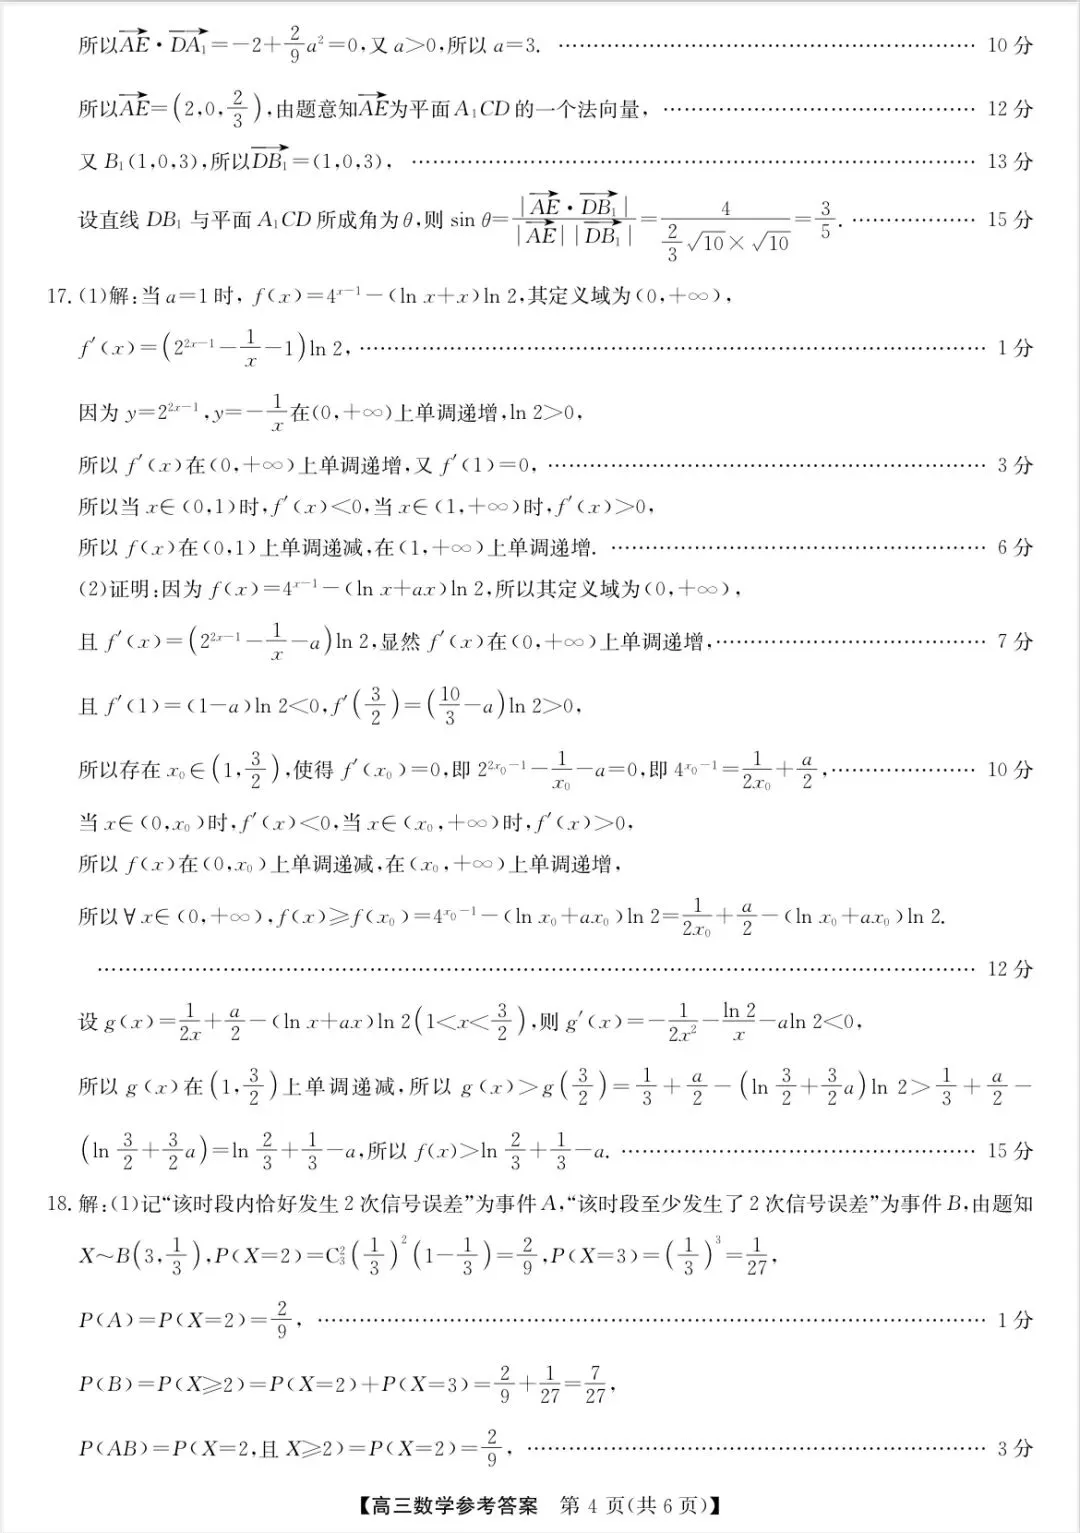 所以AE·DA₁=-2+2/9a²=0,又a>0,所以a=3. …… 10分
所以AE=(2,0,2/3),由题意知AE为平面A₁CD的一个法向量, …… 12分
又B₁(1,0,3),所以DB₁=(1,0,3), …… 13分
设直线DB₁与平面A₁CD所成角为θ,则sin θ=|AE·DB₁|/|AE||DB₁|=4/(2/3√10×√10)=3/5. …… 15分
17.(1)解:当a=1时, f(x)=4^(x-1)-(ln x+x)ln 2,其定义域为(0,+∞),
f′(x)=(2^(2x-1)-1/x-1)ln 2, …… 1分
因为y=2^(2x-1),y=-1/x在(0,+∞)上单调递增,ln 2>0,
所以f′(x)在(0,+∞)上单调递增,又f′(1)=0, …… 3分
所以当x∈(0,1)时,f′(x)<0,当x∈(1,+∞)时,f′(x)>0,
所以f(x)在(0,1)上单调递减,在(1,+∞)上单调递增. …… 6分
(2)证明:因为f(x)=4^(x-1)-(ln x+ax)ln 2,所以其定义域为(0,+∞),
且f′(x)=(2^(2x-1)-1/x-a)ln 2,显然f′(x)在(0,+∞)上单调递增, …… 7分
且f′(1)=(1-a)ln 2<0,f′(3/2)=(10/3-a)ln 2>0,
所以存在x₀∈(1,3/2),使得f′(x₀)=0,即2^(2x₀-1)-1/x₀-a=0,即4^(x₀-1)=1/2x₀+a/2, …… 10分
当x∈(0,x₀)时,f′(x)<0,当x∈(x₀,+∞)时,f′(x)>0,
所以f(x)在(0,x₀)上单调递减,在(x₀,+∞)上单调递增,
所以∀x∈(0,+∞),f(x)≥f(x₀)=4^(x₀-1)-(ln x₀+ax₀)ln 2=1/2x₀+a/2-(ln x₀+ax₀)ln 2.
…… 12分
设g(x)=1/2x+a/2-(ln x+ax)ln 2(1<x<3/2),则g′(x)=-1/2x²-ln 2/x-aln 2<0,
所以g(x)在(1,3/2)上单调递减,所以g(x)>g(3/2)=1/3+a/2-(ln 3/2+3/2a)ln 2>1/3+a/2-
(ln 3/2+3/2a)=ln 2/3+1/3-a,所以f(x)>ln 2/3+1/3-a. …… 15分
18.解:(1)记“该时段内恰好发生2次信号误差”为事件A,“该时段至少发生了2次信号误差”为事件B,由题知
X~B(3,1/3),P(X=2)=C₃²(1/3)²(1-1/3)=2/9,P(X=3)=(1/3)³=1/27,
P(A)=P(X=2)=2/9, …… 1分
P(B)=P(X≥2)=P(X=2)+P(X=3)=2/9+1/27=7/27,
P(AB)=P(X=2,且X≥2)=P(X=2)=2/9, …… 3分
【高三数学参考答案 第4页(共6页)】